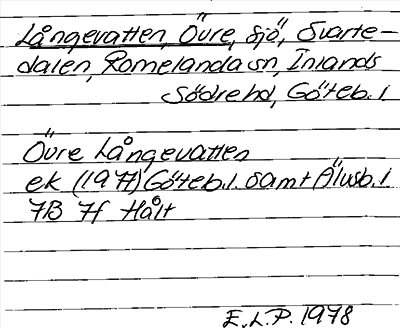 Långevatten, Övre, Sjö, Svarte-
dalen, Romelanda sn, Inlands
Södre hd, Göteb. l
Övre Långevatten
ek (1977) Göteb. l. samt Älvsb. l
7B 7f Hålt
E.L.P. 1978